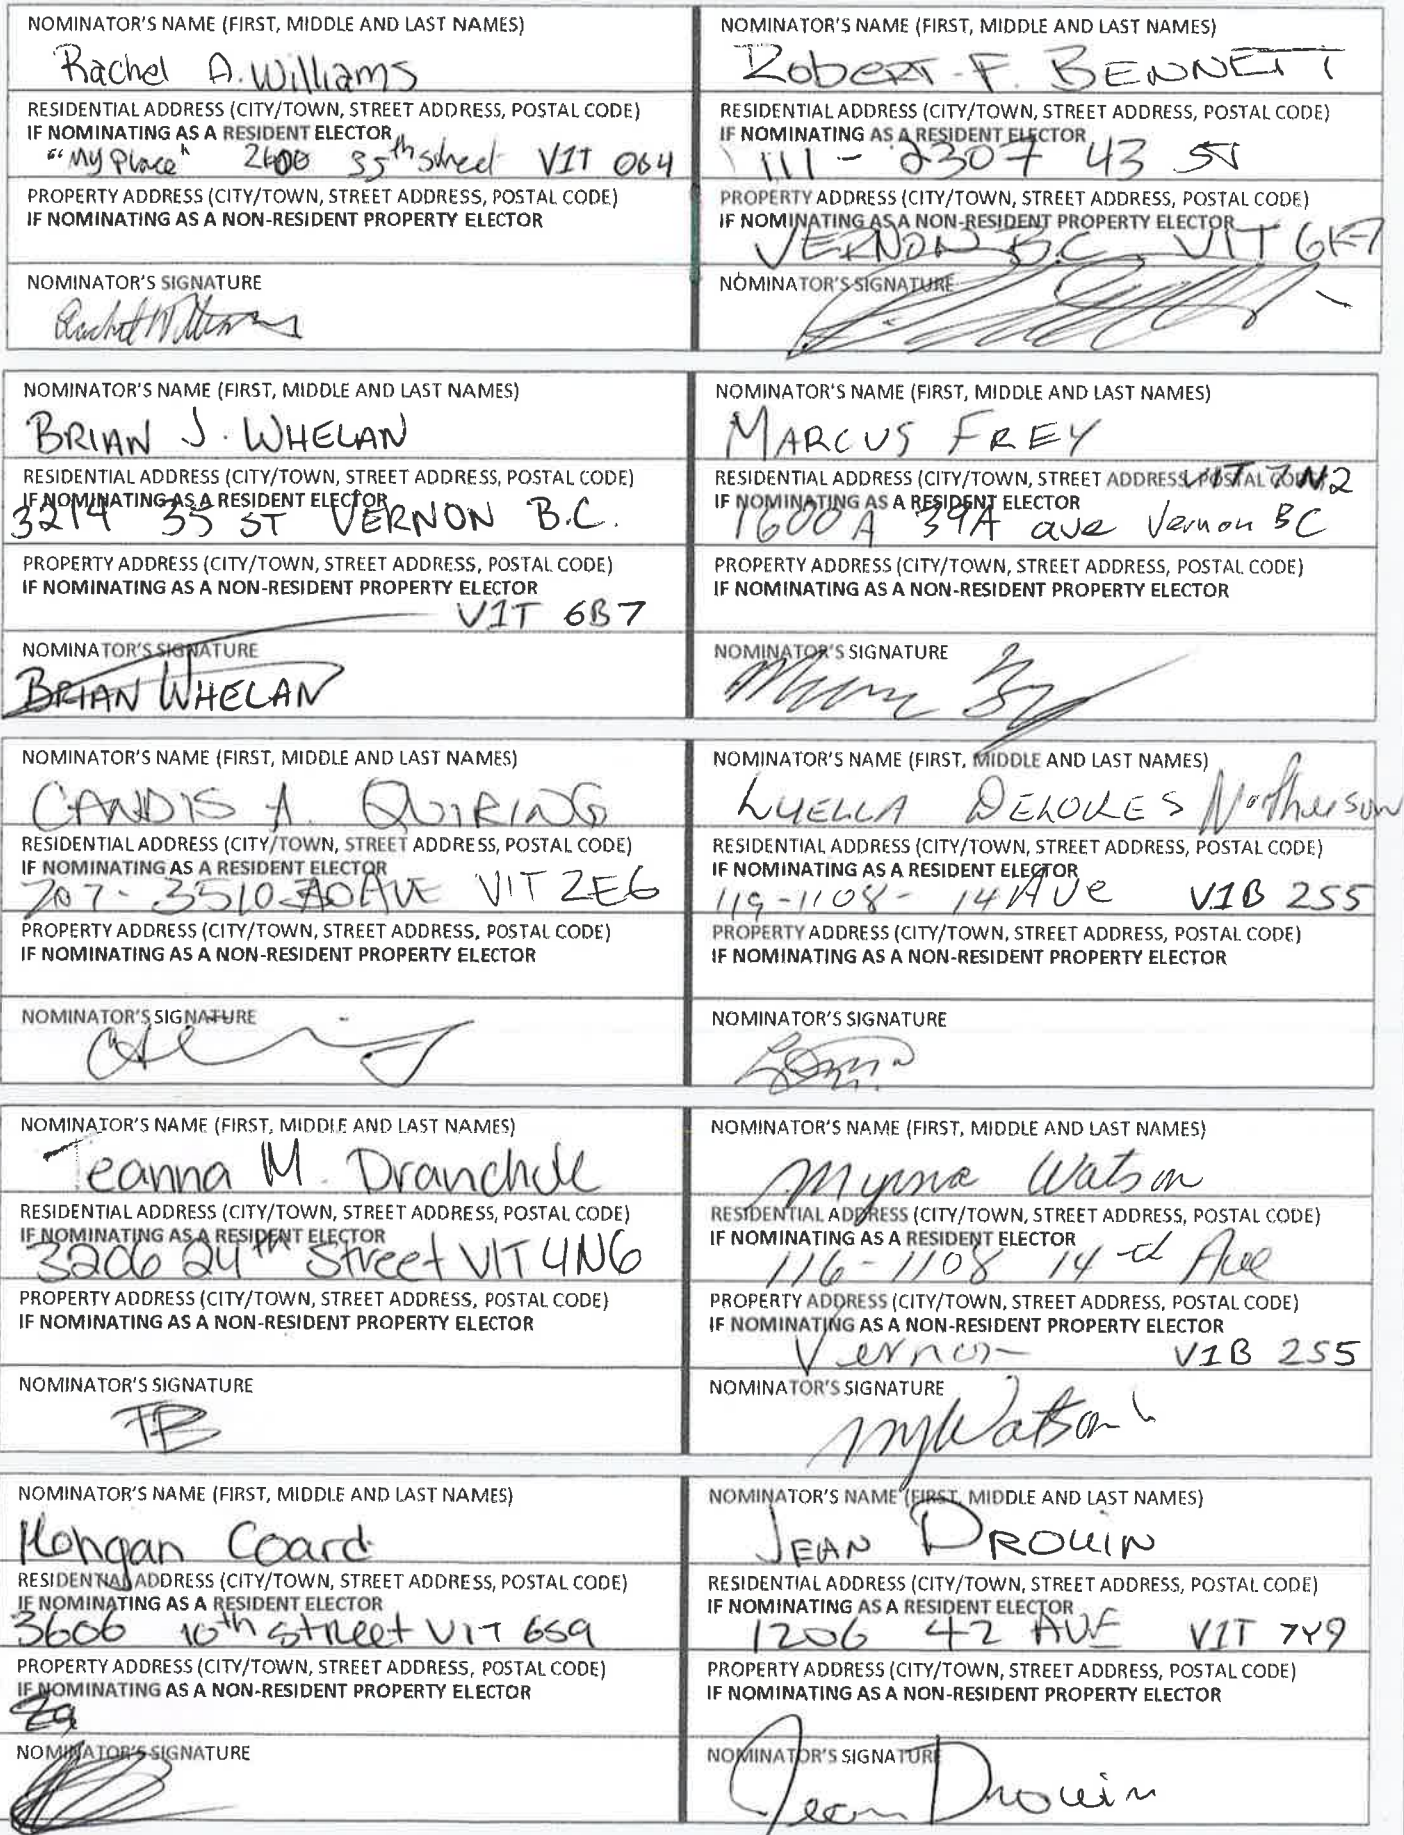 NOMINATOR'S NAME (FIRST, MIDDLE AND LAST NAMES)
Rachel A. Williams
RESIDENTIAL ADDRESS (CITY/TOWN, STREET ADDRESS, POSTAL CODE)
IF NOMINATING AS A RESIDENT ELECTOR
"My Place" 2600 35th street V1T 0G4
PROPERTY ADDRESS (CITY/TOWN, STREET ADDRESS, POSTAL CODE)
IF NOMINATING AS A NON-RESIDENT PROPERTY ELECTOR
NOMINATOR'S SIGNATURE
NOMINATOR'S NAME (FIRST, MIDDLE AND LAST NAMES)
Robert F. BENNETT
RESIDENTIAL ADDRESS (CITY/TOWN, STREET ADDRESS, POSTAL CODE)
IF NOMINATING AS A RESIDENT ELECTOR
111 - 2307 43 ST
PROPERTY ADDRESS (CITY/TOWN, STREET ADDRESS, POSTAL CODE)
IF NOMINATING AS A NON-RESIDENT PROPERTY ELECTOR
VERNON B.C. V1T 6K7
NOMINATOR'S SIGNATURE
NOMINATOR'S NAME (FIRST, MIDDLE AND LAST NAMES)
BRIAN J. WHELAN
RESIDENTIAL ADDRESS (CITY/TOWN, STREET ADDRESS, POSTAL CODE)
IF NOMINATING AS A RESIDENT ELECTOR
3214 35 ST VERNON B.C.
PROPERTY ADDRESS (CITY/TOWN, STREET ADDRESS, POSTAL CODE)
IF NOMINATING AS A NON-RESIDENT PROPERTY ELECTOR
V1T 6B7
NOMINATOR'S SIGNATURE
BRIAN WHELAN
NOMINATOR'S NAME (FIRST, MIDDLE AND LAST NAMES)
MARCUS FREY
RESIDENTIAL ADDRESS (CITY/TOWN, STREET ADDRESS, POSTAL CODE)
V1T 7N2
IF NOMINATING AS A RESIDENT ELECTOR
1600A 39A ave Vernon BC
PROPERTY ADDRESS (CITY/TOWN, STREET ADDRESS, POSTAL CODE)
IF NOMINATING AS A NON-RESIDENT PROPERTY ELECTOR
NOMINATOR'S SIGNATURE
NOMINATOR'S NAME (FIRST, MIDDLE AND LAST NAMES)
CANDIS A. QUIRING
RESIDENTIAL ADDRESS (CITY/TOWN, STREET ADDRESS, POSTAL CODE)
IF NOMINATING AS A RESIDENT ELECTOR
207 - 3510 AVE V1T 2E6
PROPERTY ADDRESS (CITY/TOWN, STREET ADDRESS, POSTAL CODE)
IF NOMINATING AS A NON-RESIDENT PROPERTY ELECTOR
NOMINATOR'S SIGNATURE
NOMINATOR'S NAME (FIRST, MIDDLE AND LAST NAMES)
LUELLA DELORES
RESIDENTIAL ADDRESS (CITY/TOWN, STREET ADDRESS, POSTAL CODE)
IF NOMINATING AS A RESIDENT ELECTOR
119-1108 - 14 AVe V1B 2S5
PROPERTY ADDRESS (CITY/TOWN, STREET ADDRESS, POSTAL CODE)
IF NOMINATING AS A NON-RESIDENT PROPERTY ELECTOR
NOMINATOR'S SIGNATURE
NOMINATOR'S NAME (FIRST, MIDDLE AND LAST NAMES)
Teanna M.
RESIDENTIAL ADDRESS (CITY/TOWN, STREET ADDRESS, POSTAL CODE)
IF NOMINATING AS A RESIDENT ELECTOR
3206 24th Street V1T 4N6
PROPERTY ADDRESS (CITY/TOWN, STREET ADDRESS, POSTAL CODE)
IF NOMINATING AS A NON-RESIDENT PROPERTY ELECTOR
NOMINATOR'S SIGNATURE
NOMINATOR'S NAME (FIRST, MIDDLE AND LAST NAMES)
Myrna Watson
RESIDENTIAL ADDRESS (CITY/TOWN, STREET ADDRESS, POSTAL CODE)
IF NOMINATING AS A RESIDENT ELECTOR
116-1108 14 Ave
PROPERTY ADDRESS (CITY/TOWN, STREET ADDRESS, POSTAL CODE)
IF NOMINATING AS A NON-RESIDENT PROPERTY ELECTOR
Vernon V1B 2S5
NOMINATOR'S SIGNATURE
MyWatson
NOMINATOR'S NAME (FIRST, MIDDLE AND LAST NAMES)
Coard
RESIDENTIAL ADDRESS (CITY/TOWN, STREET ADDRESS, POSTAL CODE)
IF NOMINATING AS A RESIDENT ELECTOR
3606 10th street V1T 6S9
PROPERTY ADDRESS (CITY/TOWN, STREET ADDRESS, POSTAL CODE)
IF NOMINATING AS A NON-RESIDENT PROPERTY ELECTOR
NOMINATOR'S SIGNATURE
NOMINATOR'S NAME (FIRST, MIDDLE AND LAST NAMES)
JEAN DROUIN
RESIDENTIAL ADDRESS (CITY/TOWN, STREET ADDRESS, POSTAL CODE)
IF NOMINATING AS A RESIDENT ELECTOR
1206 42 AVE V1T 7Y9
PROPERTY ADDRESS (CITY/TOWN, STREET ADDRESS, POSTAL CODE)
IF NOMINATING AS A NON-RESIDENT PROPERTY ELECTOR
NOMINATOR'S SIGNATURE
Jean Drouin